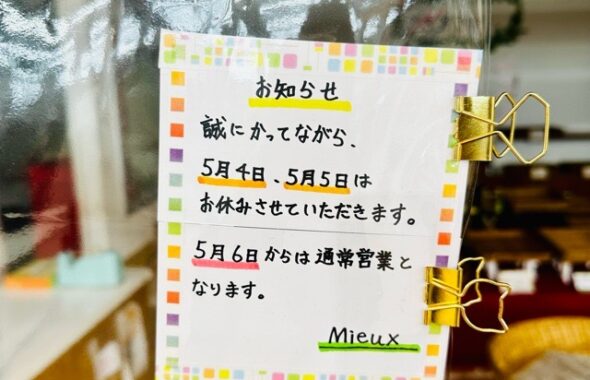 お知らせ
誠にかってながら、
5月4日、5月5日は
お休みさせていただきます。
5月6日からは通常営業と
なります。
Mieux